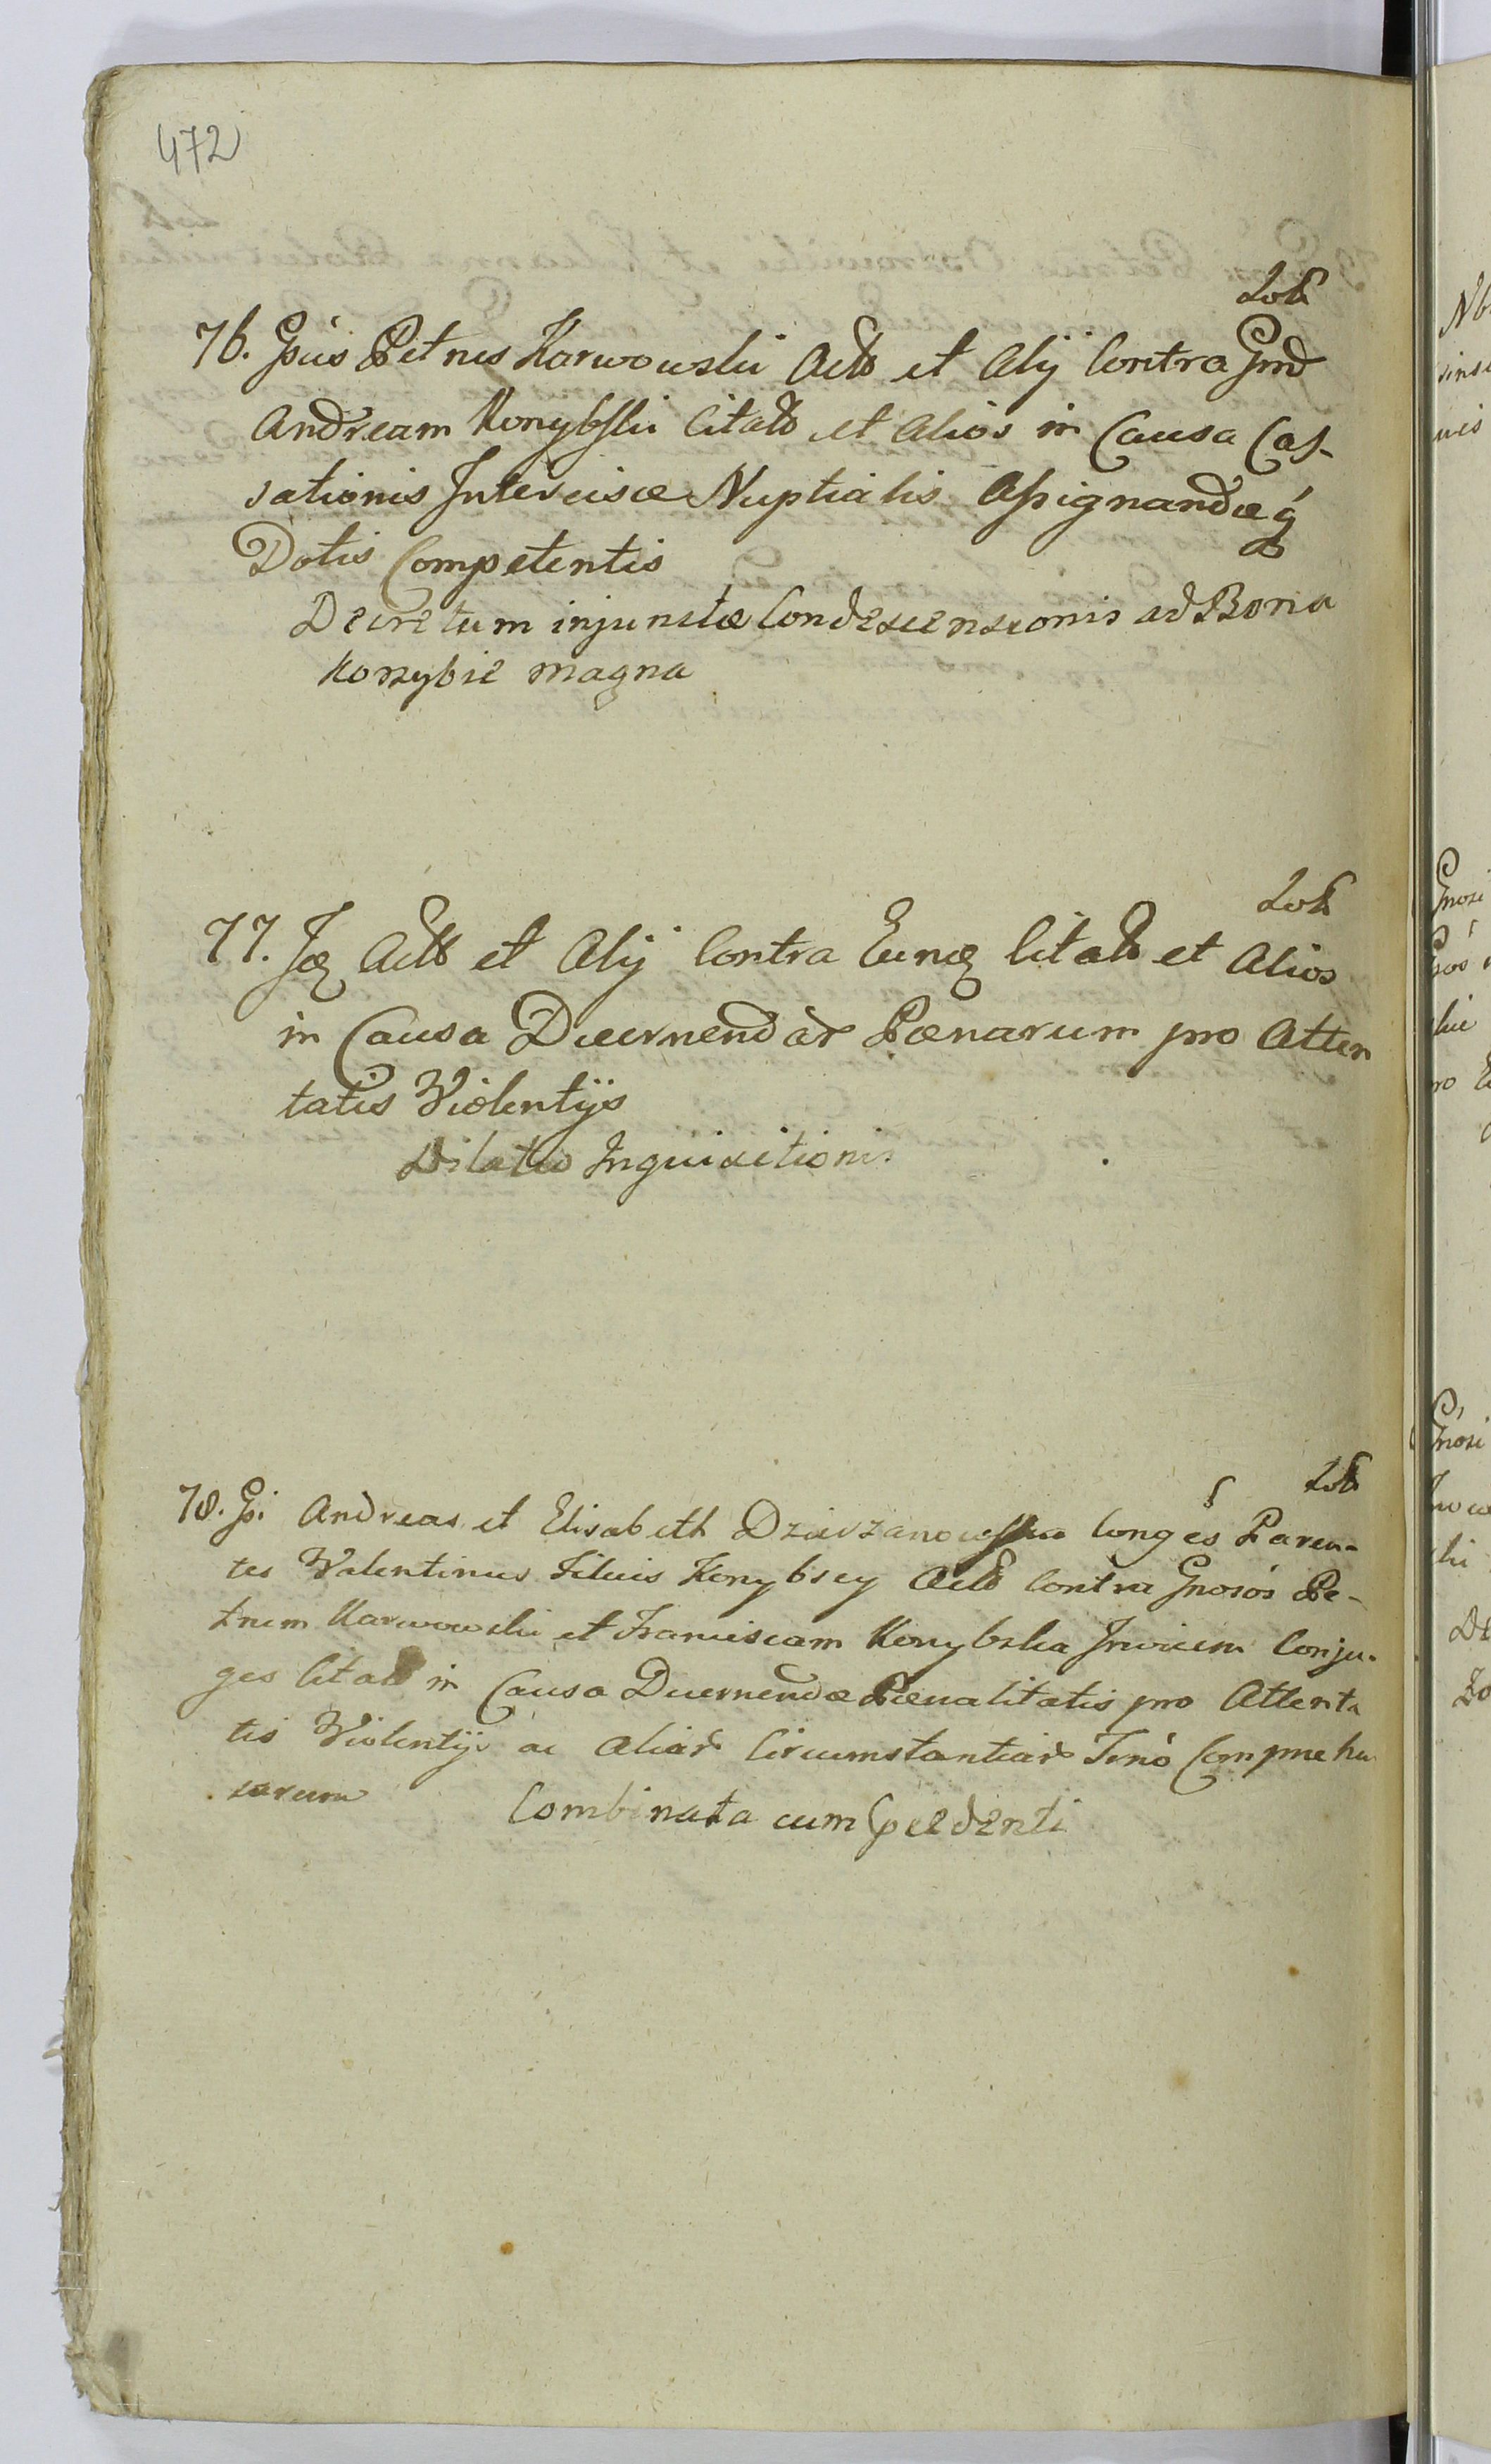 472
76. Gsus Petrus Karwowski Act et Alij Contra Gnd
Andream Konybski Citat et Alios in Causa Cas-
sationis Intercisæ Nuptialis Assignandæq
Dotis Competentis
Decretum injunctæ Condescensionis ad Bona
Korzybie magna
77. Act et Alij Contra Eund Citat et Alios
in Causa Decernendar Pœnarum pro Atten
tatis Violentijs
Dilatio Inquisitionis
78. Gsi Andreas et Elisabeth Dzierzanowska Conges Paren-
tes Valentinus Filius Konybscy Act Contra Gnosos Pe-
trum Karwowski et Franciscam Konybska Invicem Conju-
ges Citat in Causa Decernendæ Pœnalitatis pro Attenta
tis Violentijs ac Aliar Circumstantiar Compraehen
sarum
Combinata cum